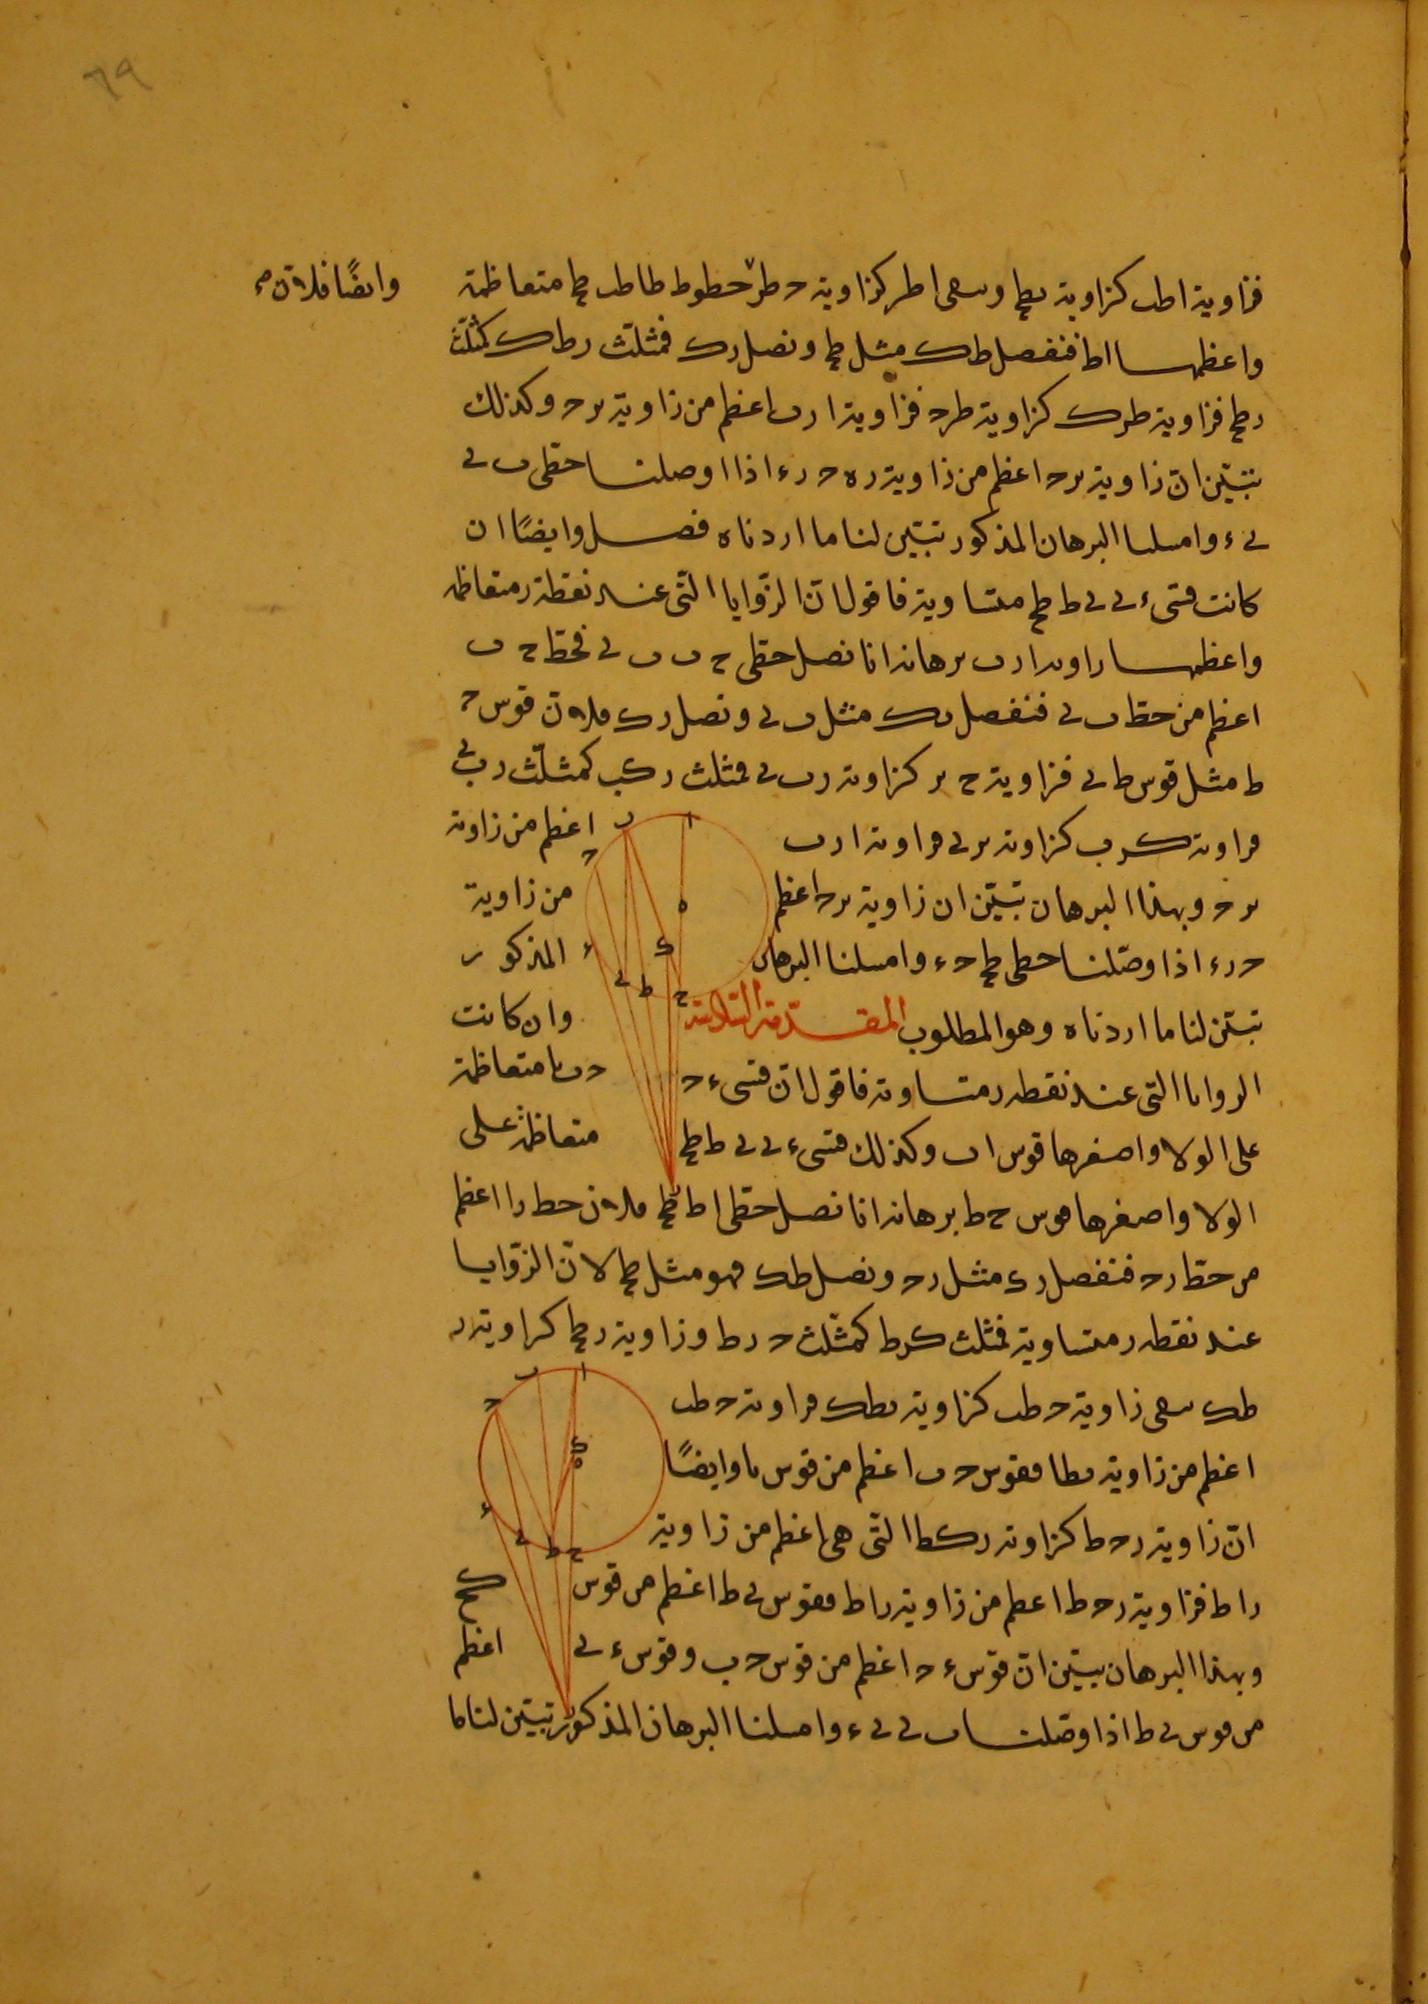 ٦٩
فزاوية اطب كزاوية بطح وسعى اطر كزاوية حطر خطوط طا طب طح متعاظمة
وايضًا فلان
واعظمها اط فنفصل طك مثل طح ونصل رك فمثلث رطك كمثلث
رطح فزاوية طرك كزاوية طرح فزاوية ارب اعظم من زاوية برح وكذلك
نتبيّن انّ زاوية برح اعظم من زاوية حرء اذا اوصلنا خطى ب ى
ى ء وامسلنا البرهان المذكور تبيّن لنا ما اردناه فصل وايضًا ان
كانت قسى ء ى ى ط طح متساوية فاقول انّ الزّوايا الّتى عند نقطة ر متعاظمة
واعظمها زاوية ارب برهانه انا نصل خطى ح ب ب ى فخطّ ح ب
اعظم من خطّ ب ى فنفصل بك مثل ب ى ونصل رك فلانّ قوس ح
ط مثل قوس ط ى فزاوية ح ب ر كزاوية ر ب ى فمثلث ركب كمثلّث ر ب ى
فزاوية كرب كزاوية برى فزاوية ارب اعظم من زاوية
برح وبهذا البرهان تبيّن ان زاوية برح اعظم من زاوية
حرء اذا وصّلنا خطى طح حء وامسلنا البرهان المذكور
تبيّن لنا ما اردناه وهو المطلوب المقدّمة الثالثة وان كانت
الزوايا التى عند نقطه ر متساوية فاقول انّ قسى ء ح ح ب با متعاظمة
على الولا واصغرها قوس اب وكذلك قسى ء ى ى ط طح متعاظمة على
الولا واصغرها قوس ح ط برهانه انا نصل خطى اط طح فلان خط را اعظم
من خطّ رح فنفصل رك مثل رح ونصل طك فهو مثل طح لانّ الزّوايا
عند نقطه ر متساوية فمثلث كرط كمثلّث ح ر ط وزاوية رطح كزاوية ر
طك سعى زاوية حطب كزاوية بطك فزاوية حطب
اعظم من زاوية بطا فقوس ح ب اعظم من قوس با وايضًا
انّ زاوية رحط كزاوية ركط الّتى هى اعظم من زاوية
راط فزاوية رحط اعظم من زاوية راط فقوس ى ط اعظم من قوس
وبهذا البرهان يتبيّن انّ قوس ء ح اعظم من قوس ح ب وقوس ء ى اعظم
من قوس ى ط اذا وصّلنا ب ى ى ء وامسلنا البرهان المذكور تبيّن لنا ما